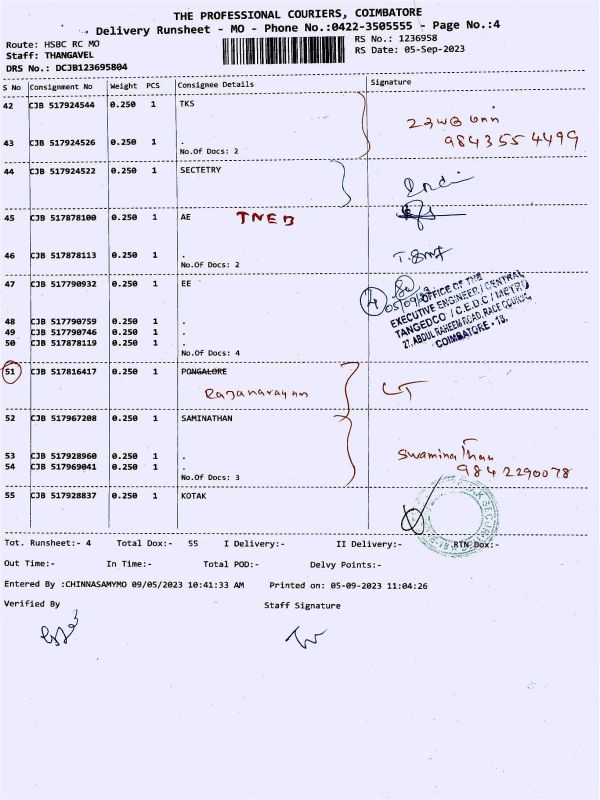 THE PROFESSIONAL COURIERS, COIMBATORE
Delivery Runsheet - MO - Phone No.:0422-3505555 - Page No.:4
Route: HSBC RC MO
RS No.: 1236958
Staff: THANGAVEL
RS Date: 05-Sep-2023
DRS No.: DCJB123695804
S No Consignment No Weight PCS Consignee Details Signature
42 CJB 517924544 0.250 1 TKS
43 CJB 517924526 0.250 1 .
9843554499
No.Of Docs: 2
44 CJB 517924522 0.250 1 SECTETRY
45 CJB 517878100 0.250 1 AE TNEB
46 CJB 517878113 0.250 1 .
No.Of Docs: 2
47 CJB 517790932 0.250 1 EE
4
05/09/23
OFFICE OF THE
EXECUTIVE ENGINEER / CENTRAL
TANGEDCO / C.E.D.C / METRO
27, ABDUL RAHEEM ROAD, RACE COURSE,
COIMBATORE - 18.
48 CJB 517790759 0.250 1 .
49 CJB 517790746 0.250 1 .
50 CJB 517878119 0.250 1 .
No.Of Docs: 4
51 CJB 517816417 0.250 1 PONGALORE
Rajanarayanan
52 CJB 517967208 0.250 1 SAMINATHAN
53 CJB 517928960 0.250 1 .
Swaminathan
54 CJB 517969041 0.250 1 .
9842290078
No.Of Docs: 3
55 CJB 517928837 0.250 1 KOTAK
Tot. Runsheet:- 4 Total Dox:- 55 I Delivery:- II Delivery:- RTN Dox:-
Out Time:- In Time:- Total POD:- Delvy Points:-
Entered By :CHINNASAMYMO 09/05/2023 10:41:33 AM Printed on: 05-09-2023 11:04:26
Verified By Staff Signature